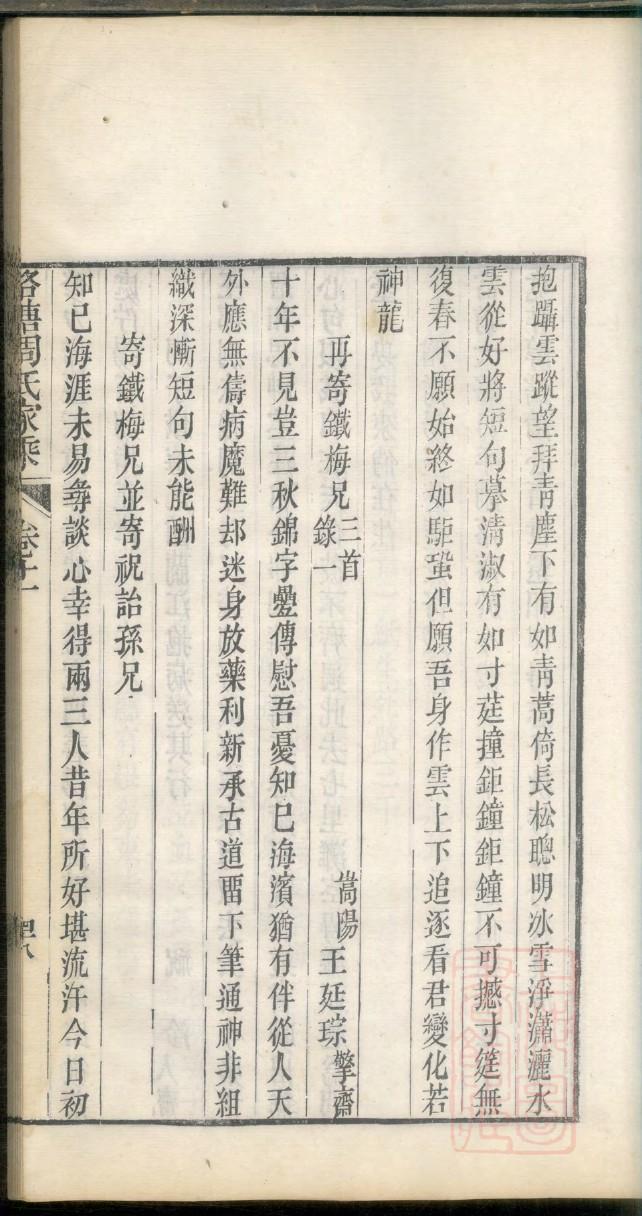 抱躡雲蹤望拜靑塵下有如靑蒿倚長松聰明冰雪淨瀟灑水
雲從好將短句摹淸淑有如寸莛撞鉅鐘鉅鐘不可撼寸筳無
復春不願始終如駏蛩但願吾身作雲上下追逐看君變化若
神龍
再寄鐵梅兄 三首錄一 嵩陽王廷琮擎齋
十年不見豈三秋錦字疊傳慰吾憂知已海濱猶有伴從人天
外應無儔病魔難却迷身放藥利新承古道畱下筆通神非組
織深慚短句未能酬
寄鐵梅兄並寄祝詒孫兄
知已海涯未易尋談心幸得兩三人昔年所好堪流汗今日初
周氏家乘 卷十一